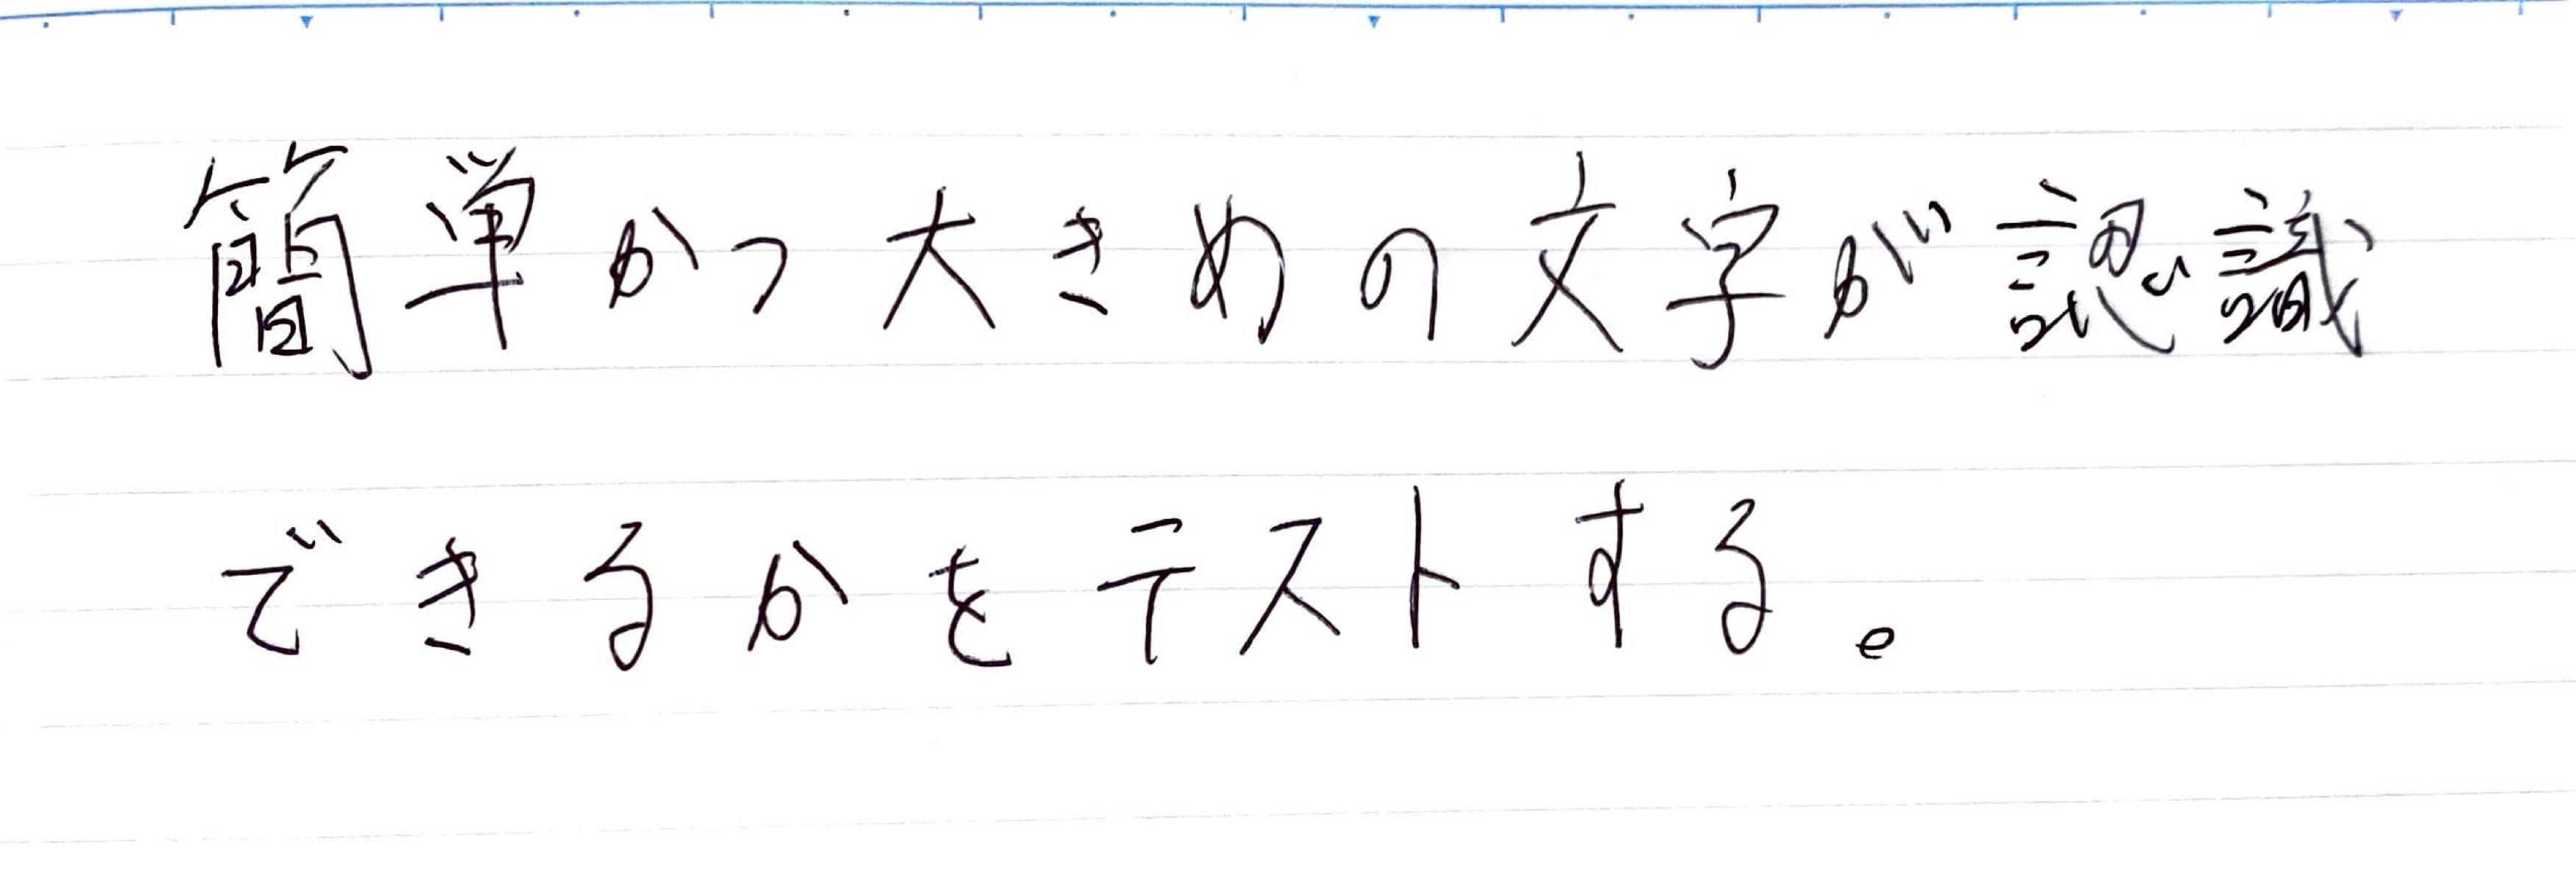 簡単かつ大きめの文字が認識
できるかをテストする。